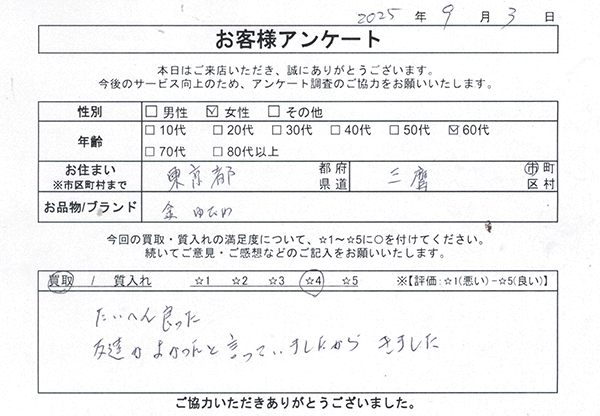 2025 年 9 月 3 日
お客様アンケート
本日はご来店いただき、誠にありがとうございます。
今後のサービス向上のため、アンケート調査のご協力をお願いいたします。
性別 □ 男性 ☑ 女性 □ その他
年齢 □ 10代 □ 20代 □ 30代 □ 40代 □ 50代 ☑ 60代
□ 70代 □ 80代以上
お住まい ※市区町村まで 東京都 都府県道 三鷹 市町区村
お品物/ブランド 金
今回の買取・質入れの満足度について、☆1~☆5に○を付けてください。
続いてご意見・ご感想などのご記入をお願いいたします。
買取 / 質入れ ☆1 ☆2 ☆3 ☆4 ☆5 ※【評価:☆1(悪い)-☆5(良い)】
たいへん良った
友達がよかったと言っていましたから きました
ご協力いただきありがとうございました。